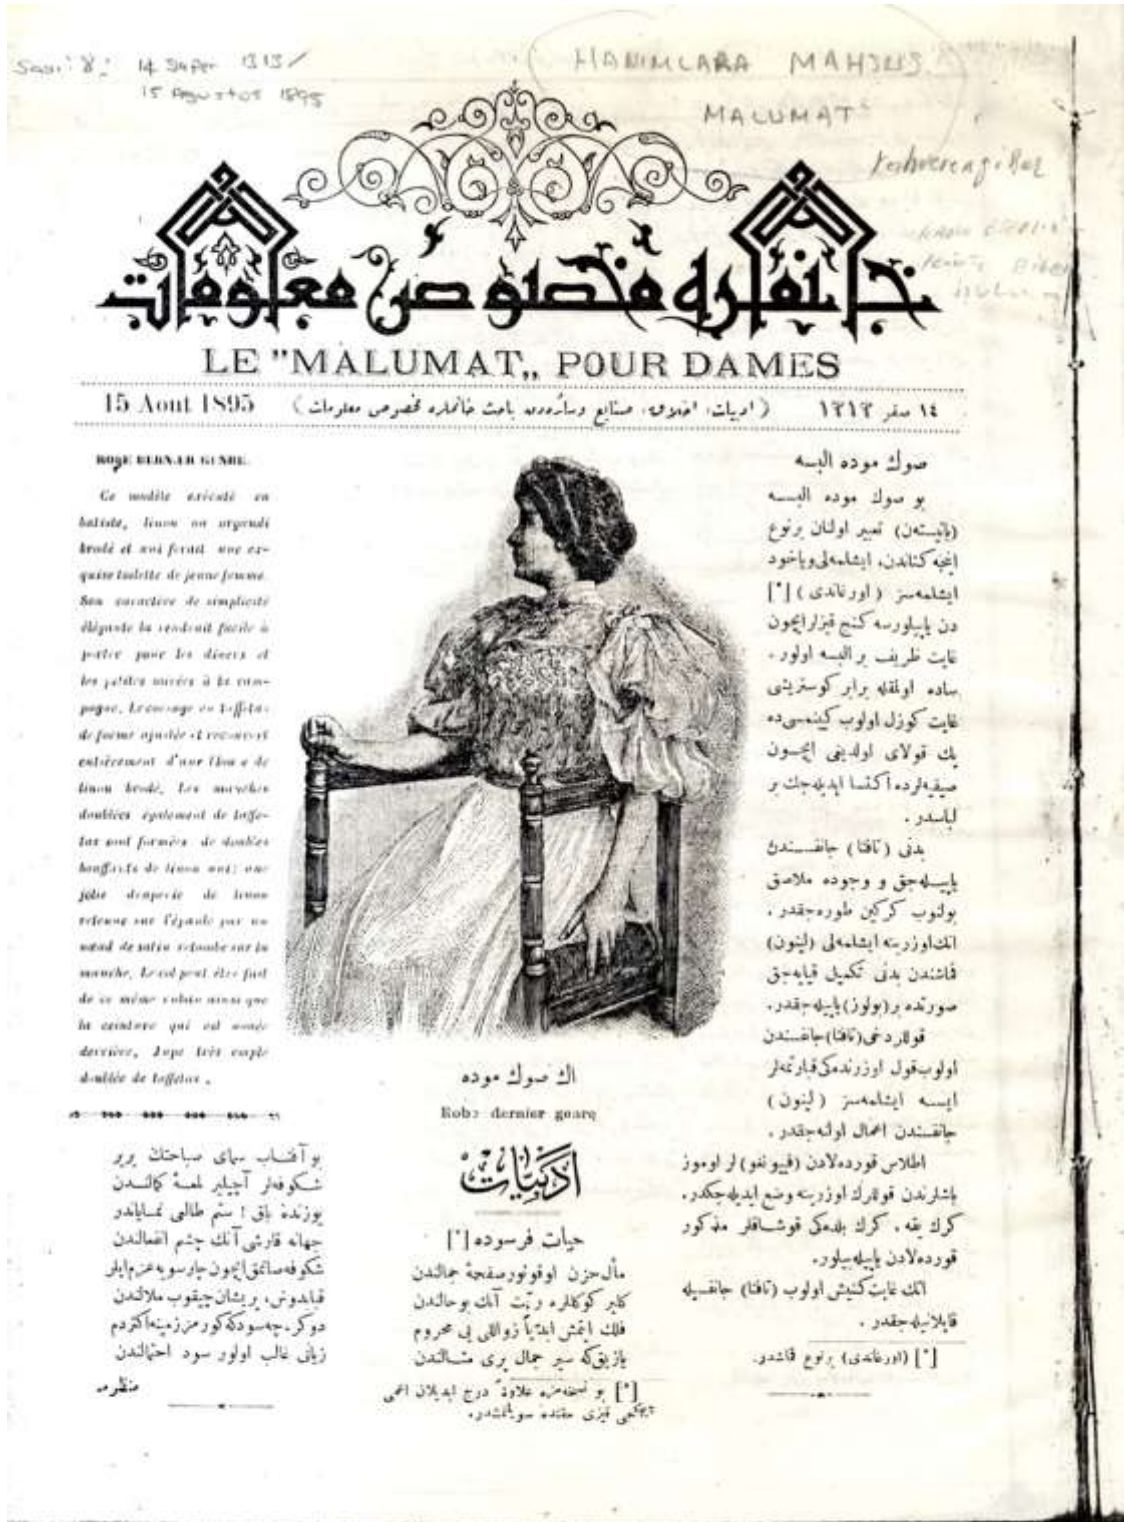 Sayı: 8. 14 Safer 1313/
15 Agustos 1895
HANIMLARA MAHSUS
MALUMAT
خانملره مخصوص معلومات
LE "MALUMAT„ POUR DAMES
15 Aout 1895
(ادبیات، اخلاق، صنایع وسائره‌دن باحث خانملره مخصوص معلومات)
١٤ صفر ١٣١٣
Ce modèle exécuté en
batiste, linon ou organdi
brodé et uni ferait une ex-
quise toilette de jeune femme.
Son caractère de simplicité
élégante la rendrait facile à
porter pour les diners et
les petites soirées à la cam-
pagne. Le corsage en taffetas
de forme ajustée et recouvert
entièrement d'une blouse de
linon brodé. Les manches
doublées également de taffe-
tas sont formées de doubles
bouffants de linon uni; une
jolie draperie de linon
retenue sur l'épaule par un
nœud de satin retombe sur la
manche. Le col peut être fait
de ce même ruban ainsi que
la ceinture qui est nouée
derrière. Jupe très ample
doublée de taffetas.
صوك موده البسه
بو صوك موده البسه
(باتیستەن) تعبیر اولنان برنوع
اینجه كتاندن، ایشلمه‌لی ویاخود
ایشلمه‌سز (اورغاندی) [*]
دن یاپیلورسه كنج قیزلر ایچون
غایت ظریف بر البسه اولور.
ساده اولمقله برابر كوستریشی
غایت كوزل اولوب كینمسی ده
پك قولای اولدیغی ایچون
صیفیه‌لرده اكتسا ایدیله‌جك بر
لباسدر.
بدنی (تافتا) جانفسندن
یاپیله‌جق و وجوده ملاصق
بولنوب كركین طوره‌جقدر.
انك اوزرینه ایشلمه‌لی (لینون)
قماشندن بدنی تكمیل قپایه‌جق
صورتده بر (بولوز) یاپیله‌جقدر.
قوللر دخی (تافتا) جانفسندن
اولوب قول اوزرنده‌كی قبارتمه‌لر
ایسه ایشلمه‌سز (لینون)
جانفسندن اعمال اولنه‌جقدر.
اطلاس قورده‌لادن (فییونغو) لر اوموز
باشلرندن قوللرك اوزرینه وضع ایدیله‌جكدر.
كرك یقه، كرك بلده‌كی قوشاقلر مذكور
قورده‌لادن یاپیله‌بیلور.
اتك غایت كنیش اولوب (تافتا) جانفسیله
قاپلانیله‌جقدر.
[*] (اورغاندی) برنوع قماشدر.
اك صوك موده
Robe dernier genre
ادبیات
حیات فرسوده [*]
مآل حزن اوقونور صفحهٔ جمالندن
كلیر كوكللره رقت آنك بو حالندن
فلك ایتمش ابدیاً زواللی یی محروم
یازیق‌كه سیر جمال پری مثالندن
[*] بو نسخه‌مزه علاوةً درج ایدیلان اعمی
چیچكجی قیزی حقنده سویلنمشدر.
بو آفتاب سمای صباحتك بربر
شكوفه‌لر آچیلیر لمعهٔ كمالندن
یوزنده باق! ستم طالعی نمایاندر
جهانه قارشی آنك چشم انفعالندن
شكوفه صاتمق ایچون چارسویه عزم ایلر
دوكر، چه سودكه كورمز زمینه اكثر دم
زیانی غالب اولور سود احتمالندن